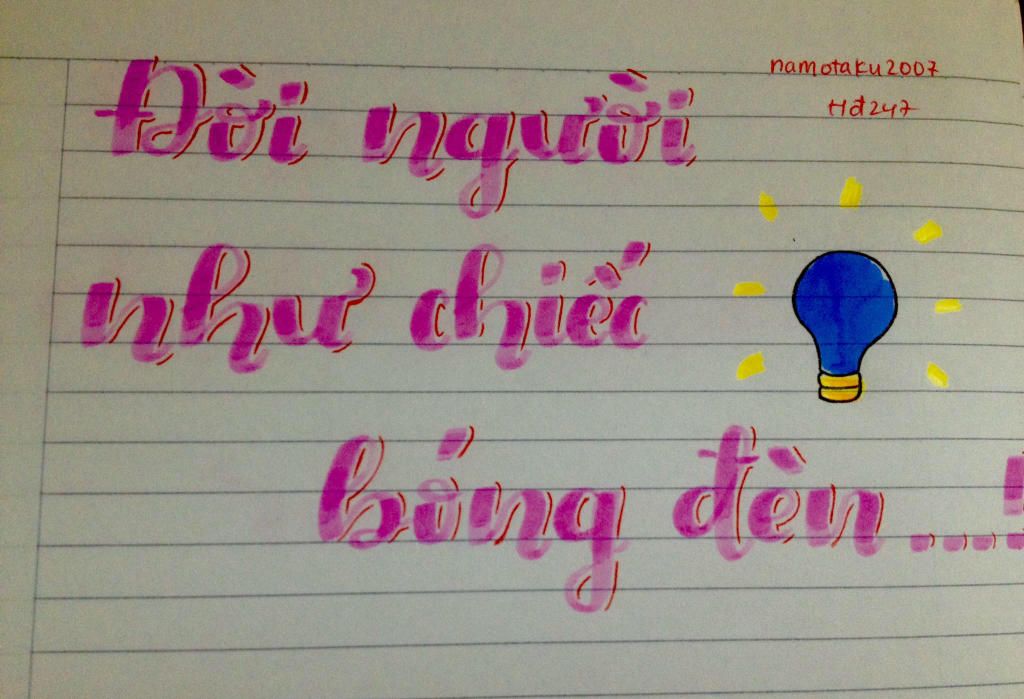 namotaku2007
Hđ247
Đời người
như chiếc
bóng đèn ....!